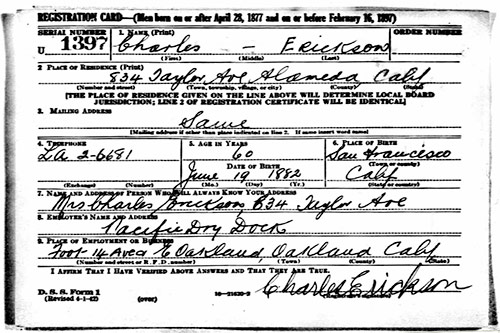 REGISTRATION CARD—(Men born on or after April 28, 1877 and on or before February 16, 1897)
SERIAL NUMBER 1. NAME (Print) ORDER NUMBER
U 1397 Charles — Erickson
(First) (Middle) (Last)
2. PLACE OF RESIDENCE (Print)
834 Taylor Ave Alameda Calif
(Number and street) (Town, township, village, or city) (County) (State)
[THE PLACE OF RESIDENCE GIVEN ON THE LINE ABOVE WILL DETERMINE LOCAL BOARD
JURISDICTION; LINE 2 OF REGISTRATION CERTIFICATE WILL BE IDENTICAL]
3. MAILING ADDRESS
Same
[Mailing address if other than place indicated on line 2. If same insert word same]
4. TELEPHONE 5. AGE IN YEARS 6. PLACE OF BIRTH
LA 2-6681 60 San Francisco
DATE OF BIRTH (Town or county)
June 19 1882 Calif
(Exchange) (Number) (Mo.) (Day) (Yr.) (State or country)
7. NAME AND ADDRESS OF PERSON WHO WILL ALWAYS KNOW YOUR ADDRESS
Mrs Charles Erickson 834 Taylor Ave
8. EMPLOYER'S NAME AND ADDRESS
Pacific Dry Dock
9. PLACE OF EMPLOYMENT OR BUSINESS
Foot 14 Ave Oakland, Oakland Calif
(Number and street or R. F. D. number) (Town) (County) (State)
I AFFIRM THAT I HAVE VERIFIED ABOVE ANSWERS AND THAT THEY ARE TRUE.
D. S. S. Form 1
(Revised 4-1-42) (over) 16—21630-2 Charles Erickson